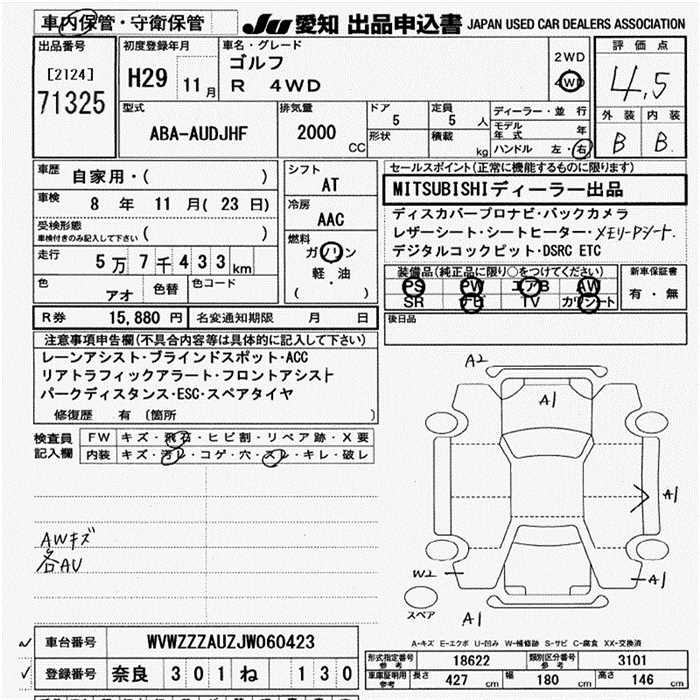 車内保管・守衛保管 JU 愛知 出品申込書 JAPAN USED CAR DEALERS ASSOCIATION
出品番号 初度登録年月 車名・グレード 評価点
[2124] H29 11月 ゴルフ 2WD
71325 R 4WD 4WD 4,5
型式 排気量 ドア 定員 ディーラー・並行 外装 内装
ABA-AUDJHF 2000 CC 5 5人 モデル年式 年 B B
形状 積載 kg ハンドル 左・右
車歴 自家用・( ) シフト セールスポイント(正常に機能するものに限ります)
AT MITSUBISHIディーラー出品
車検 8 年 11 月( 23 日) 冷房 ディスカバープロナビ・バックカメラ
受検形態 ( ) AAC レザーシート・シートヒーター・メモリーPシート.
車検付きのみ記入して下さい 燃料 デジタルコックピット・DSRC ETC
走行 5万7千433km ガソリン 装備品(純正品に限り○をつけてください) 新車保証書
色 アオ 色替 色コード 軽・油 PS PW エアB AW 有・無
( ) SR ナビ TV カワシート
R券 15,880 円 名変通知期限 月 日 後日品
注意事項申告欄(不具合内容等は具体的に記入して下さい)
レーンアシスト・ブラインドスポット・ACC A2
リアトラフィックアラート・フロントアシスト A1
パークディスタンス・ESC・スペアタイヤ
修復歴 有 (箇所 )
検査員 FW キズ・飛石・ヒビ割・リペア跡・X要
記入欄 内装 キズ・汚レ・コゲ・穴・スレ・キレ・破レ
A1
AWキズ
各AU
W2 A1
スペア A1
A-キズ E-エクボ U-凹み W-補修跡 S-サビ C-腐食 XX-交換済
車台番号 WVWZZZAUZJW060423
形式指定番号 参考 18622 類別区分番号 参考 3101
登録番号 奈良 301 ね 130
車庫証明用 参考 長さ 427 cm 幅 180 cm 高さ 146 cm